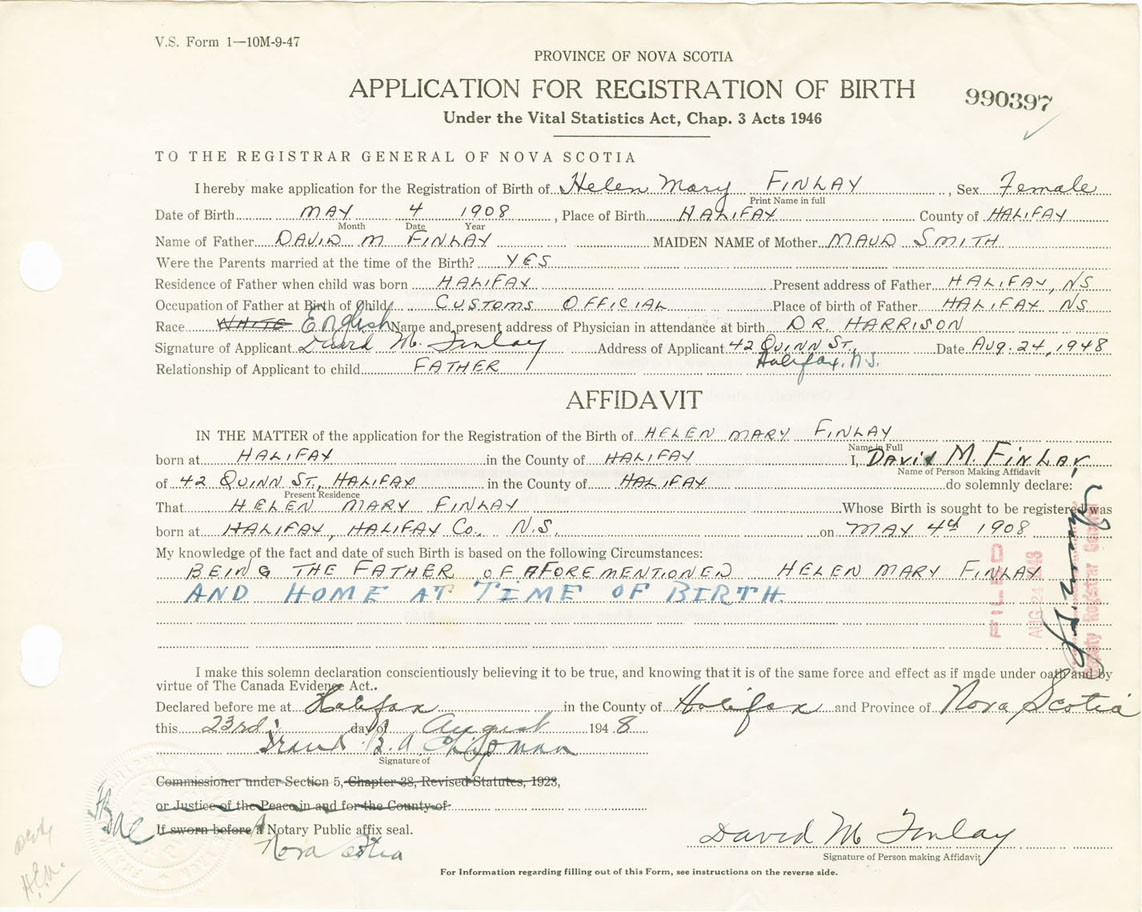 V.S. Form 1—10M-9-47
PROVINCE OF NOVA SCOTIA
APPLICATION FOR REGISTRATION OF BIRTH
990397
Under the Vital Statistics Act, Chap. 3 Acts 1946
TO THE REGISTRAR GENERAL OF NOVA SCOTIA
I hereby make application for the Registration of Birth of Helen Mary FINLAY, Sex Female
Print Name in full
Date of Birth MAY 4 1908, Place of Birth HALIFAX County of HALIFAX
Month Date Year
Name of Father DAVID M FINLAY MAIDEN NAME of Mother MAUD SMITH
Were the Parents married at the time of the Birth? YES
Residence of Father when child was born HALIFAX Present address of Father HALIFAX, NS
Occupation of Father at Birth of Child CUSTOMS OFFICIAL Place of birth of Father HALIFAX NS
Race WHITE English Name and present address of Physician in attendance at birth DR. HARRISON
Signature of Applicant David M. Finlay Address of Applicant 42 QUINN ST, Date AUG. 24, 1948
Halifax, N.S.
Relationship of Applicant to child FATHER
AFFIDAVIT
IN THE MATTER of the application for the Registration of the Birth of HELEN MARY FINLAY
Name in Full
born at HALIFAX in the County of HALIFAX I, DAVID M. FINLAY
Name of Person Making Affidavit
of 42 QUINN ST, HALIFAX in the County of HALIFAX do solemnly declare:
Present Residence
That HELEN MARY FINLAY Whose Birth is sought to be registered was
born at HALIFAX, HALIFAX Co., N.S. on MAY 4th 1908
My knowledge of the fact and date of such Birth is based on the following Circumstances:
BEING THE FATHER OF AFOREMENTIONED HELEN MARY FINLAY
AND HOME AT TIME OF BIRTH.
FILED
AUG 24 1948
Deputy Registrar General
I make this solemn declaration conscientiously believing it to be true, and knowing that it is of the same force and effect as if made under oath and by
virtue of The Canada Evidence Act.
Declared before me at Halifax in the County of Halifax and Province of Nova Scotia
this 23rd day of August 1948
Signature of
Commissioner under Section 5, Chapter 38, Revised Statutes, 1923,
or Justice of the Peace in and for the County of
If sworn before A Notary Public affix seal.
Nova Scotia
David M Finlay
Signature of Person making Affidavit
For Information regarding filling out of this Form, see instructions on the reverse side.